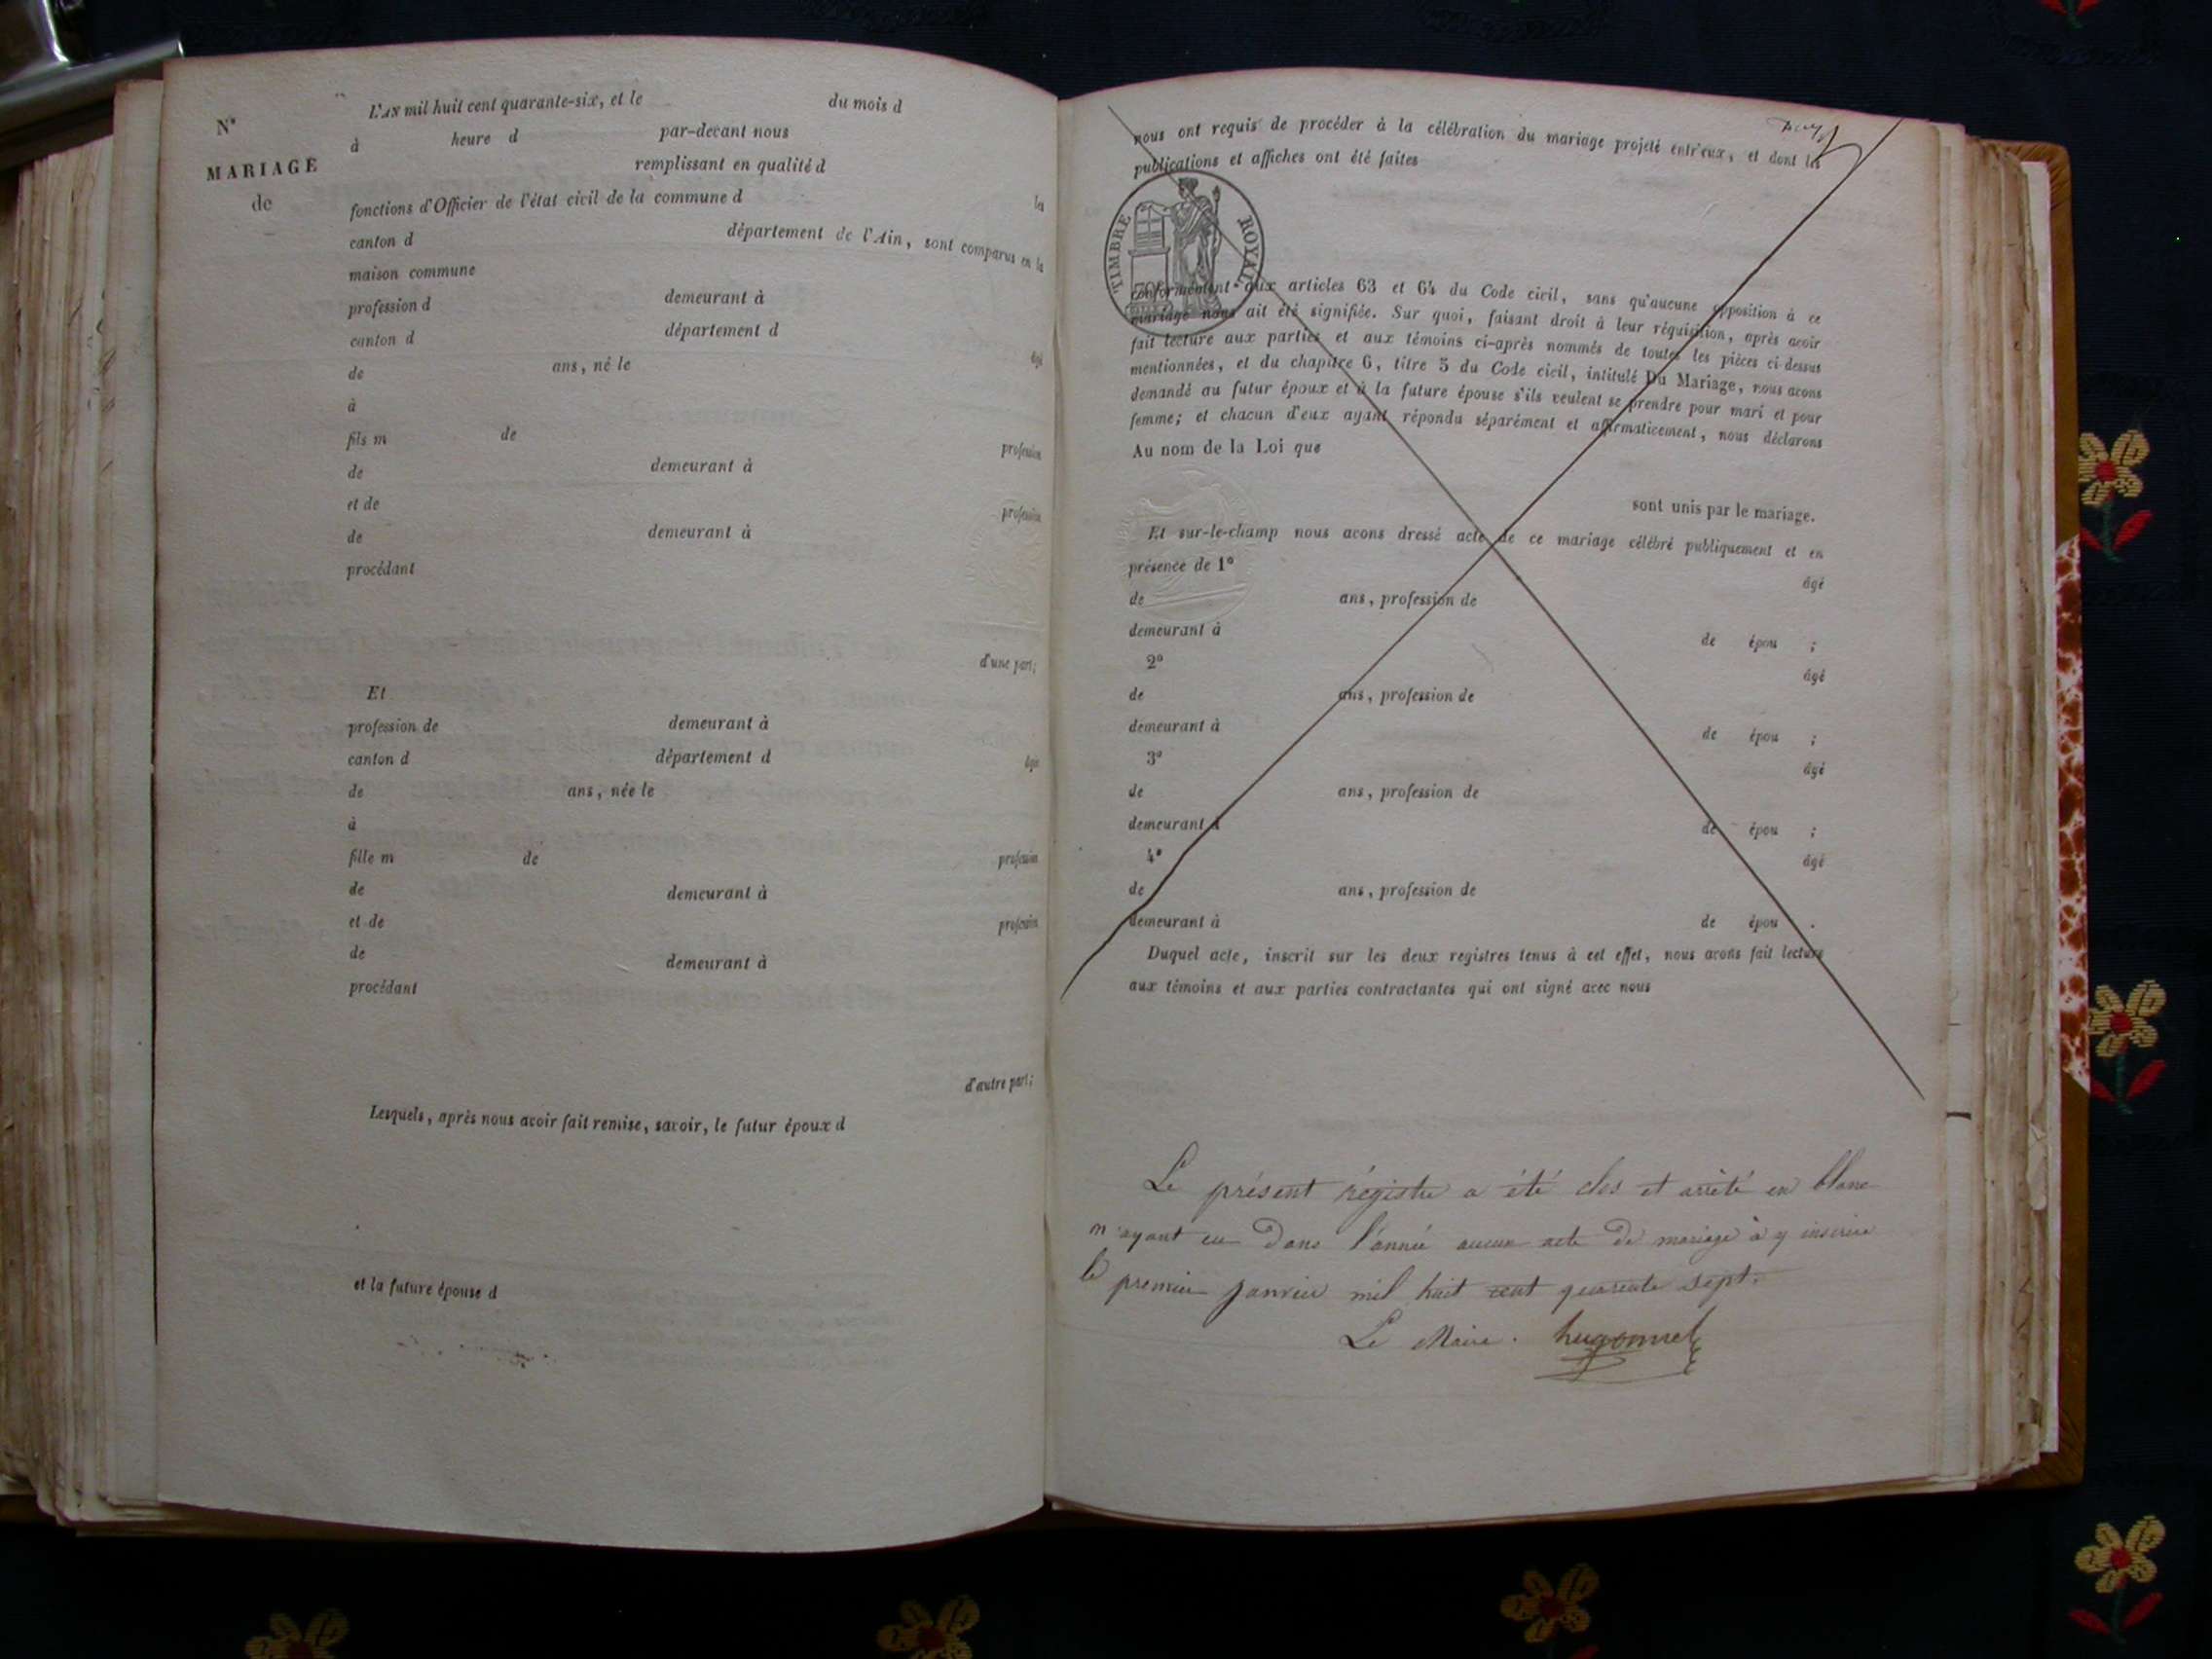 N°
MARIAGE
de
L'AN mil huit cent quarante-six, et le du mois d
à heure d par-devant nous
remplissant en qualité d les
fonctions d'Officier de l'état civil de la commune d
canton d département de l'Ain, sont comparus en la
maison commune
profession d demeurant à
canton d département d âgé
de ans, né le
à
fils m de profession
de demeurant à
et de profession
de demeurant à
procédant
d'une part;
Et
profession de demeurant à
canton d département d âgé
de ans, née le
à
fille m de profession
de demeurant à
et de profession
de demeurant à
procédant
d'autre part;
Lesquels, après nous avoir fait remise, savoir, le futur époux d
et la future épouse d
nous ont requis de procéder à la célébration du mariage projeté entr'eux, et dont les
publications et affiches ont été faites
TIMBRE ROYAL
conformément aux articles 63 et 64 du Code civil, sans qu'aucune opposition à ce
mariage nous ait été signifiée. Sur quoi, faisant droit à leur réquisition, après avoir
fait lecture aux parties et aux témoins ci-après nommés de toutes les pièces ci-dessus
mentionnées, et du chapitre 6, titre 5 du Code civil, intitulé Du Mariage, nous avons
demandé au futur époux et à la future épouse s'ils veulent se prendre pour mari et pour
femme; et chacun d'eux ayant répondu séparément et affirmativement, nous déclarons
Au nom de la Loi que
sont unis par le mariage.
Et sur-le-champ nous avons dressé acte de ce mariage célébré publiquement et en
présence de 1° âgé
de ans, profession de
demeurant à de épou ;
2° âgé
de ans, profession de
demeurant à de épou ;
3° âgé
de ans, profession de
demeurant à de épou ;
4° âgé
de ans, profession de
demeurant à de épou .
Duquel acte, inscrit sur les deux registres tenus à cet effet, nous avons fait lecture
aux témoins et aux parties contractantes qui ont signé avec nous
Le présent régistre a été clos et arrêté en blanc
n'ayant eu dans l'année aucun acte de mariage à y inscrire
le premier janvier mil huit cent quarante sept.
Le Maire. hugonnet